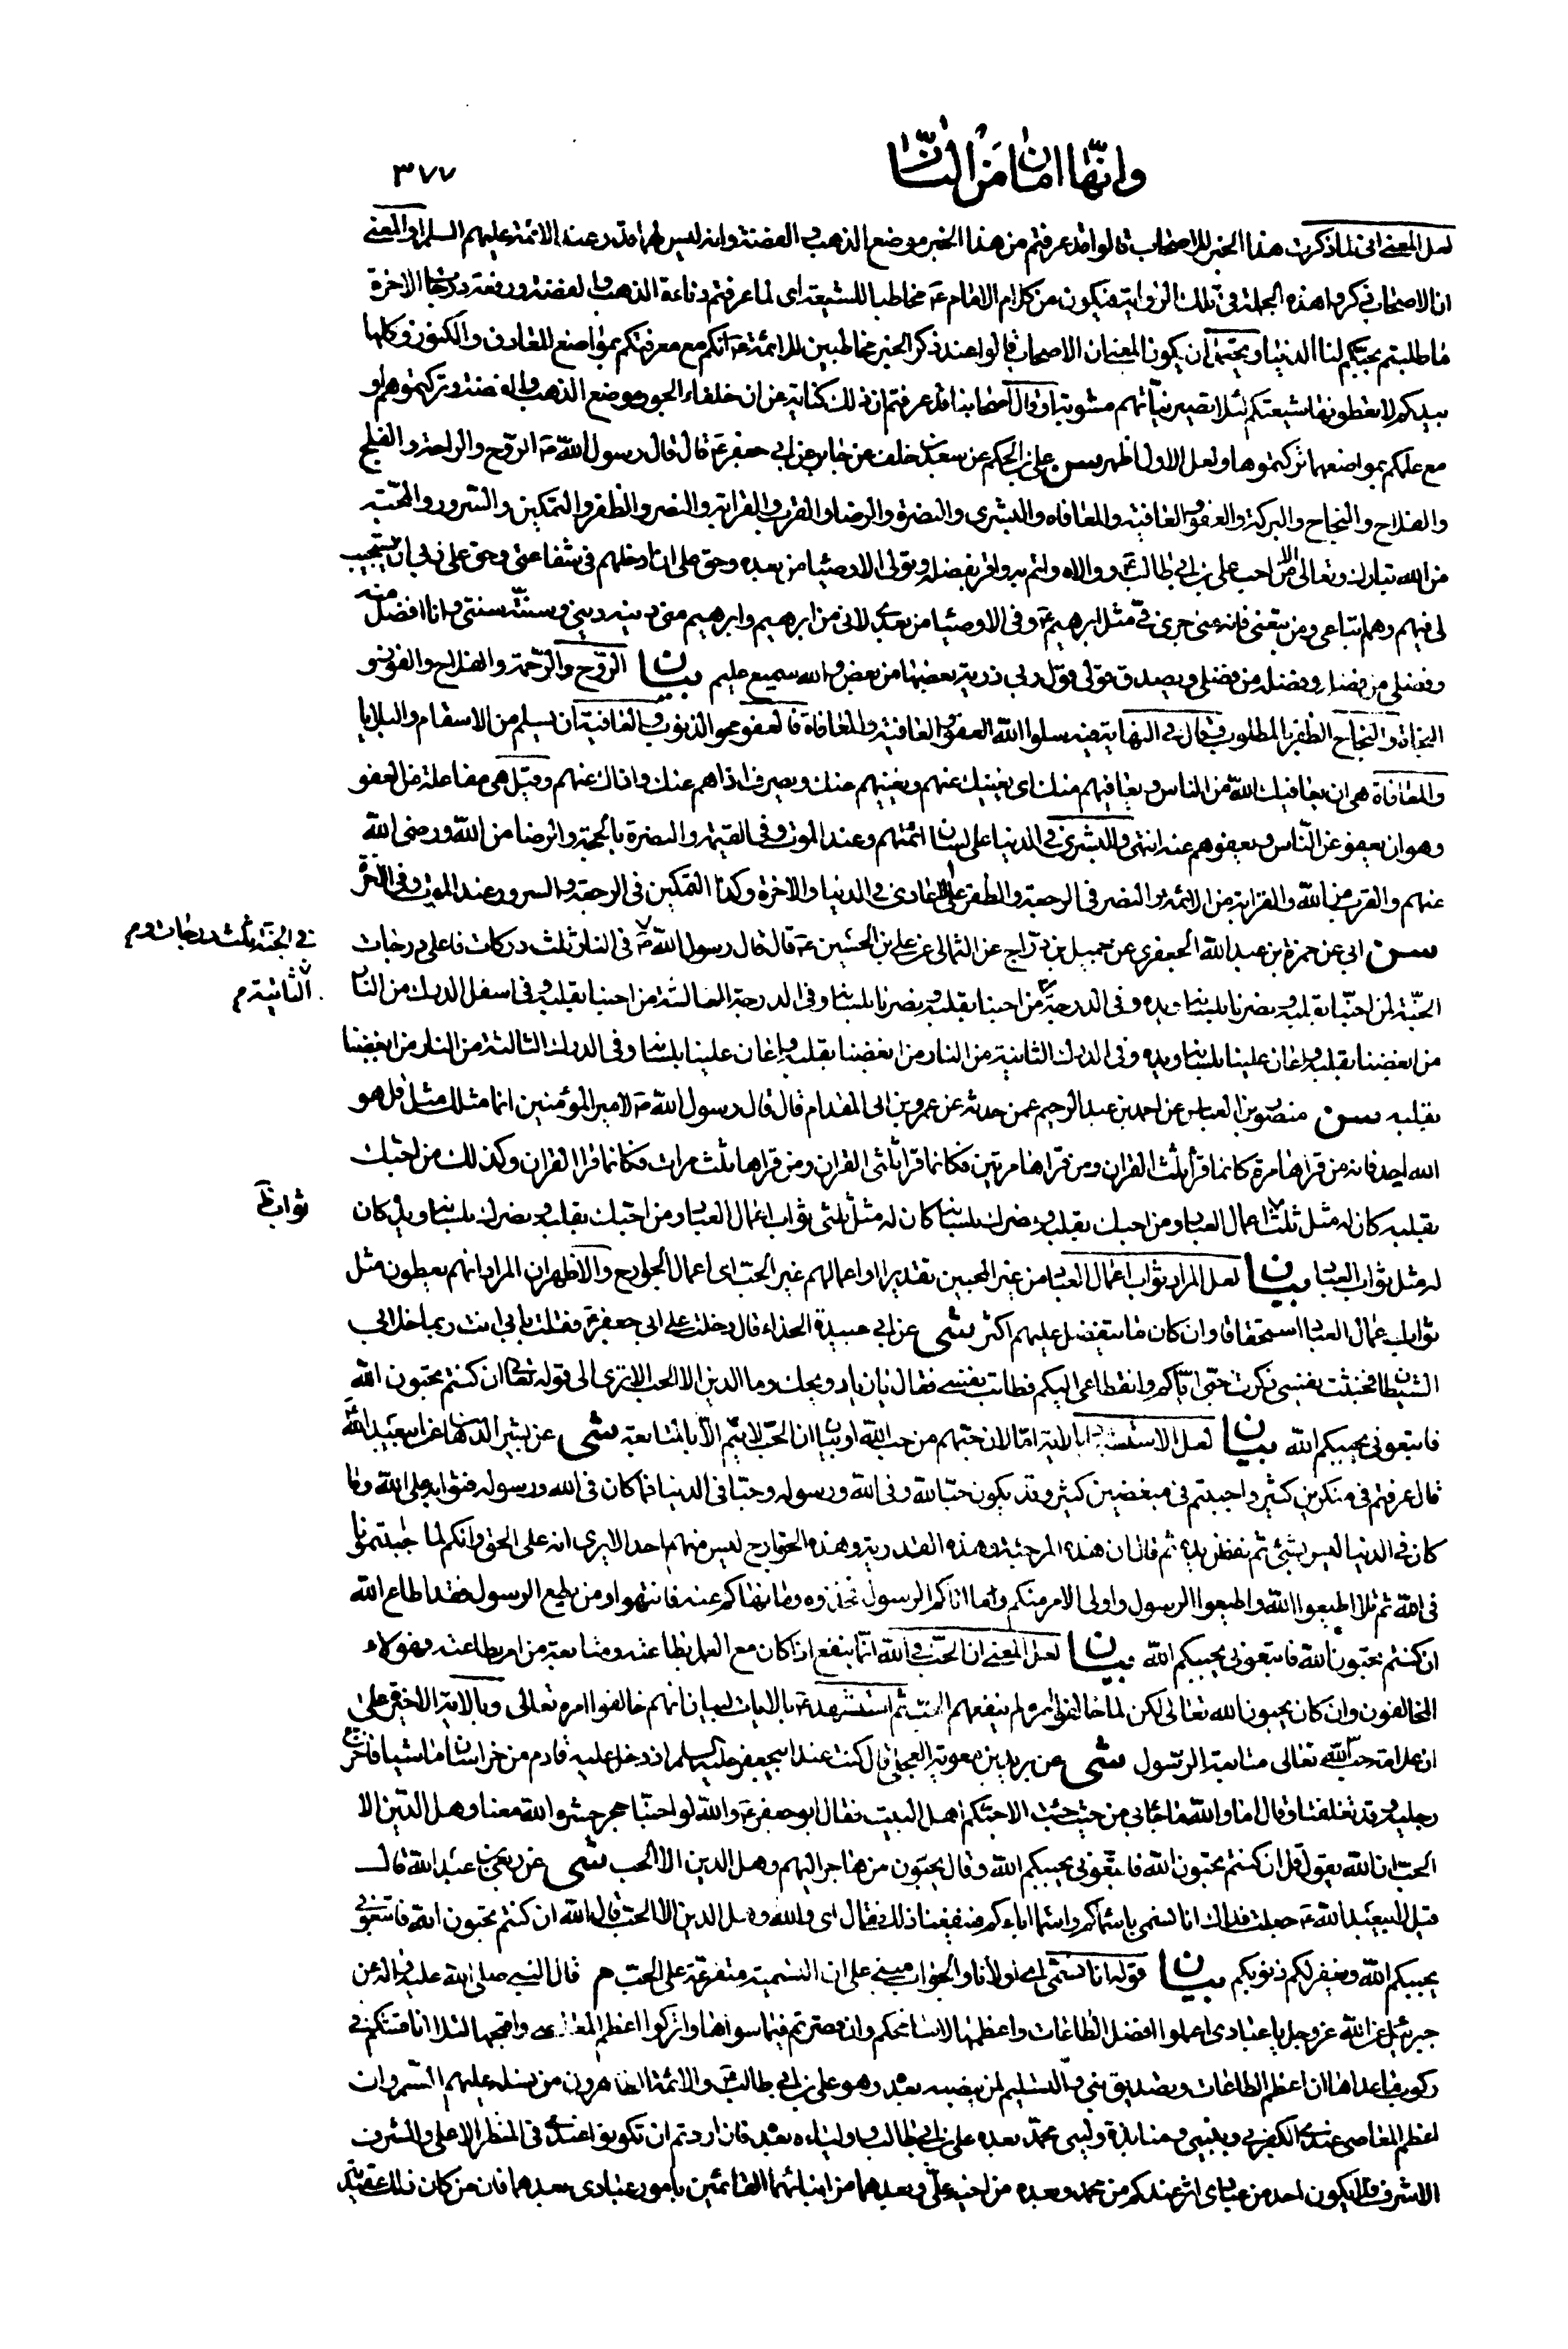 وانّها امان من النّار
٣٧٧
لعل المعنى انى لما ذكرت هذا الخبر للاصحاب قالوا قد عرفتم من هذا الخبر موضع الذهب و الفضة وانه ليس لهما قدر عند الائمة عليهم السلم او المعنى
ان الاصحاب ذكروا هذه الجملة في تلك الرواية فيكون من كلام الامام ع مخاطبا للشيعة اى لما عرفتم دناءة الذهب و الفضة ورفعة درجات الاخرة
ما طلبتم بحبكم لنا الدنيا ويحتمل ان يكون المعنى ان الاصحاب قالوا عند ذكر الخبر مخاطبين للائمة ع انكم مع معرفتكم بمواضع المعادن والكنوز وكلها
بيدكم لا تعطونها شيعتكم لئلا تصير نياتهم مشوبة او قال اصحابنا قد عرفتم ان ذلك كناية عن ان خلفاء الجور موضع الذهب والفضة وتركتموهم او
مع علمكم بمواضعهما تركتموها ولعل الاول اظهر سن على بن الحكم عن سعد بن خلف عن جابر عن ابي جعفر ع قال قال رسول الله ص الروح والراحة والفلج
والفلاح والنجاح والبركة والعفو والعافية والمعافاه والبشرى والنضرة والرضا والقرب والقرابة والنصر والظفر والتمكين والسّرور والمحبّة
من الله تبارك وتعالى على من احب على بن ابي طالب ع ووالاه وائتم به واقر بفضله وتولى الاوصيا من بعده وحق على ان ادخلهم في شفاعتى وحق على ربي ان يستجيب
لى فيهم وهم اتباعى ومن تبعنى فانه منى جرى فيّ مثل ابرهيم ع وفى الاوصيا من بعدى لانى من ابرهيم وابرهيم منى دينه ديني وسنته سنتي وانا افضل منه
وفضلى من فضله وفضله من فضلى ويصدق قولى قول ربي ذرية بعضها من بعض والله سميع عليم بيان الروح والرّحمة والفلاح والفوز و
النجاة والنجاح الظفر بالمطلوب وقال في النهاية فيه سلوا الله العفو والعافية والمعافاة فالعفو محو الذنوب والعافية ان يسلم من الاسقام والبلايا
والمعافاة هى ان يعافيك الله من الناس ويعافيهم منك اى يغنيك عنهم ويغنيهم عنك ويصرف اذاهم عنك واذاك عنهم وقيل هى مفاعلة من العفو
وهو ان يعفو عن النّاس ويعفو هم عنه انتهى والبشرى في الدنيا على لسان ائمتهم وعند الموت وفي القيمة والنضرة بالجنة والرضا من الله ورضى الله
عنهم والقرب من الله والقرابة من الائمة والنصر في الرجعة والظفر على الاعادى في الدنيا والاخرة وكذا التمكين في الرجعة والسرور عند الموت وفى الاخرة
سن ابي عن حمزة بن عبد الله الجعفري عن جميل بن درّاج عن الثمالى عن علي بن الحسين ع قال قال رسول الله ص في النار ثلث دركات فاعلى درجات
في الجنة ثلث درجات و م
الجنّة لمن احبنا بقلبه ونصرنا بلسانه ويده وفى الدرجة من احبنا بقلبه ونصرنا بلسانه وفى الدرجة الثالثة من احبنا بقلبه وفى اسفل الدرك من النار
الثانية م
من ابغضنا بقلبه واعان علينا بلسانه ويده وفى الدرك الثانية من النار من ابغضنا بقلبه واعان علينا بلسانه وفى الدرك الثالثة من النار من ابغضنا
بقلبه سن منصور بن العباس عن احمد بن عبد الرحيم عمن حدثه عن عمرو بن ابى المقدام قال قال رسول الله ص لامير المؤمنين انما مثلك مثل قل هو
الله احد فانه من قراها مرة كانما قرأ ثلث القران ومن قراها مرتين فكانما قرا ثلثى القران ومن قراها ثلث مرات فكانما قرا القران وكذلك من احبك
بقلبه كان له مثل ثلث اعمال العباد ومن احبك بقلبه ونصرك بلسانه كان له مثل ثلثى ثواب اعمال العباد ومن احبك بقلبه ونصرك بلسانه ويده كان
ثواب ظ
له مثل ثواب العباد بيان لعل المراد ثواب اعمال العباد من غير المحبين تقديرا او اعمالهم غير الحب اى اعمال الجوارح والاظهر ان المراد انهم يعطون مثل
ثواب اعمال العباد استحقاقا وان كان ما يتفضل عليهم اكثر شى عن ابي عبيدة الحذاء قال دخلت على ابي جعفر ع فقلت بابي انت ربما خلا بي
الشيطان فخبثت نفسى ثم ذكرت حبى اياكم وانقطاعى اليكم فطابت نفسى فقال يا زياد ويحك وما الدين الا الحب الا ترى الى قوله تعالى ان كنتم تحبون الله
فاتبعونى يحببكم الله بيان لعل الاستشهاد بالاية اما لان حبهم من حب الله او بيان ان الحب لا يتم الا بالمتابعة شى عن بشير الدهان عن ابي عبد الله ع
قال عرفتم في منكرين كثير واحببتم في مبغضين كثير وقد يكون حبا لله وفى الله ورسوله وحبا فى الدنيا فما كان فى الله ورسوله فثوابه على الله وما
كان فى الدنيا فليس بشئ ثم نفض يده ثم قال ان هذه المرجئة وهذه القدرية وهذه الخوارج ليس منهم احد الا يرى انه على الحق وانكم انما احببتمونا
فى الله ثم تلا اطيعوا الله واطيعوا الرسول واولى الامر منكم وما اتاكم الرسول فخذوه وما نهاكم عنه فانتهوا ومن يطع الرسول فقد اطاع الله
ان كنتم تحبون الله فاتبعونى يحببكم الله بيان لعل المعنى ان الحب في الله انما ينفع اذا كان مع العمل بطاعته ومتابعة من امر بطاعته وهؤلاء
المخالفون وان كان يحبون الله تعالى لكن لما خالفوا امره لم ينفعهم الحب ثم استشهد ع بالايات لبيان انهم خالفوا امره تعالى وبالاية الاخيرة على
ان علامة حب الله تعالى متابعة الرّسول شى عن بريد بن معوية العجلى قال كنت عند ابي جعفر عليه السلم اذ دخل عليه قادم من خراسان ماشيا فاخرج
رجليه وقد تغلفتا وقال اما والله ما جائنى من حيث جئت الا حبكم اهل البيت فقال ابو جعفر ع والله لو احبنا حجر حشره الله معنا وهل الدّين الا
الحب ان الله يقول قل ان كنتم تحبون الله فاتبعونى يحببكم الله وقال يحبون من هاجر اليهم وهل الدين الا الحب شى عن ربعى بن عبد الله قال
قيل لابي عبد الله ع جعلت فداك انا نسمى باسمائكم واسماء ابائكم فينفعنا ذلك فقال اى والله وهل الدين الا الحب قال الله ان كنتم تحبون الله فاتبعونى
يحببكم الله ويغفر لكم ذنوبكم بيان قوله انا نسمّى اى اولادنا والجواب مبنى على ان التسمية متفرعة على الحب م قال النبي صلى الله عليه واله عن
جبرئيل عن الله عز وجل يا عبادى اعملوا افضل الطاعات واعظمها لاسامحكم وان قصرتم فيما سواها واتركوا اعظم المعاصى واقبحها لئلا اناقشكم فى
ركوب ما عداها ان اعظم الطاعات توحيدى وتصديق نبيي والتسليم لمن ينصبه بعده وهو على بن ابي طالب ع والائمة الطاهرون من نسله عليهم السّلم وان
اعظم المعاصى عندى الكفر بي وبنبيي ومنابذة ولى محمد بعده على بن ابي طالب واوليائه بعده فان اردتم ان تكونوا عندى فى المنظر الاعلى والشرف
الاشرف فلا يكونن احد من عبادى اثر عندكم من محمد وبعده من اخيه على وبعدهما من ابنائهما القائمين بامور عبادى بعدهما فان من كان ذلك عقيدته